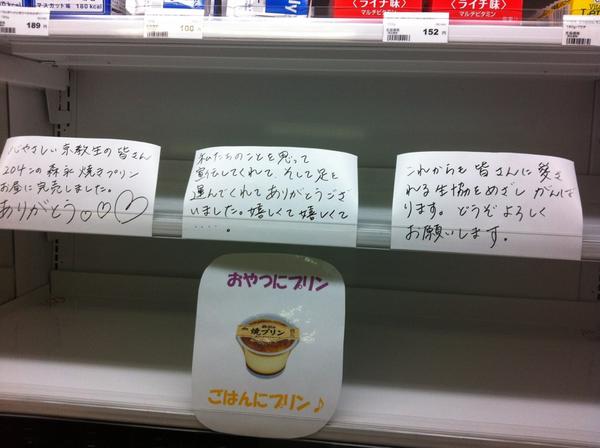 マスカット味 180kcal
180 kcal
189
100
152
〈ライチ味〉
マルチビタミン
〈ライチ味〉
マルチビタミン
心やさしい京教生の皆さん
204この森永焼きプリン
お昼に完売しました。
ありがとう♡♡♡
私たちのことを思って
宣伝してくれて、そして足を
運んでくれてありがとうござ
いました。嬉しくて嬉しくて
……。
これからも皆さんに愛さ
れる生協をめざしがんば
ります。どうぞよろしく
お願いします。
おやつにプリン
焼プリン
ごはんにプリン♪